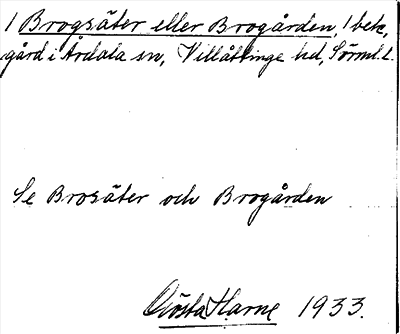 1 Brogsäter eller Brogården, 1 bebz,
gård i Årdala sn, Villåttinge hd, Sörml. L.
Se Brosäter och Brogården
Gösta Harne 1933.